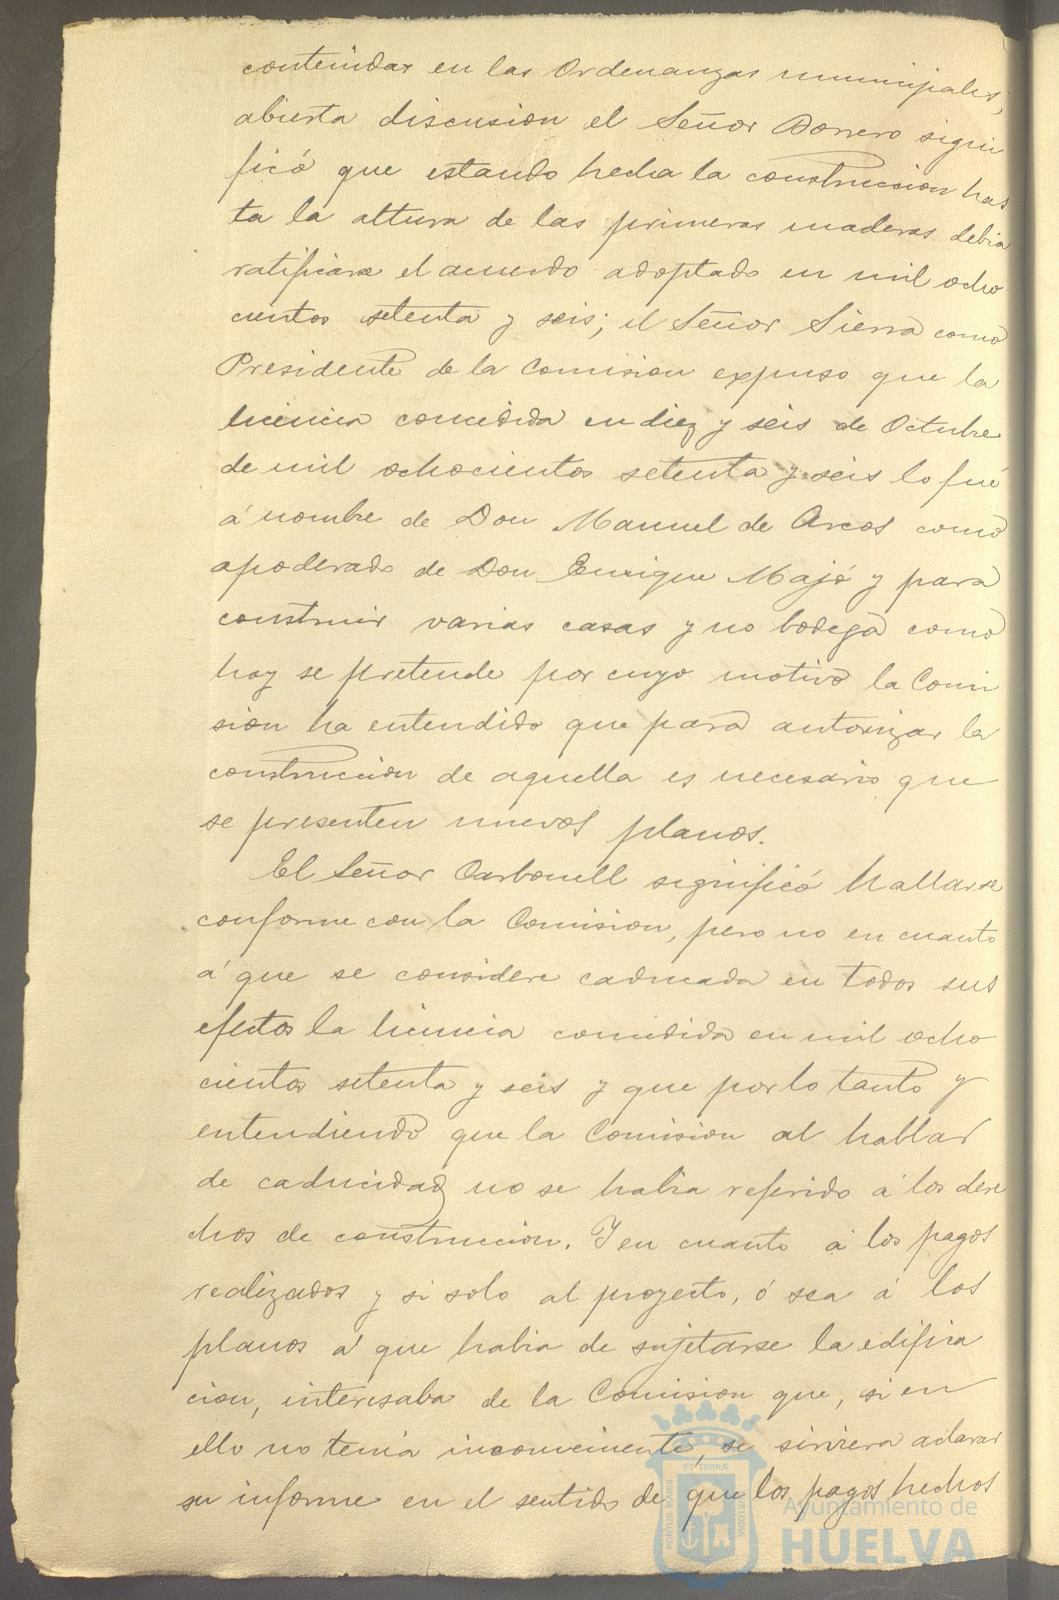 contenidas en las Ordenanzas municipales;
abierta discusion el Señor Borrero signi
ficó que estando hecha la construccion has
ta la altura de las primeras maderas debia
ratificarse el acuerdo adoptado en mil ocho
cientos setenta y seis; el Señor Sierra como
Presidente de la Comision expuso que la
licencia concedida en diez y seis de Octubre
de mil ochocientos setenta y seis lo fué
á nombre de Don Manuel de Arcos como
apoderado de Don Enrique Majó y para
construir varias casas y no bodega como
hoy se pretende por cuyo motivo la Comi
sion ha entendido que para autorizar la
construccion de aquella es necesario que
se presenten nuevos planos.
El Señor Carbonell significó hallarse
conforme con la Comision, pero no en cuanto
á que se considere caducada en todos sus
efectos la licencia concedida en mil ocho
cientos setenta y seis y que por lo tanto y
entendiendo que la Comision al hablar
de caducidad no se habia referido á los dere
chos de construccion. Y en cuanto á los pagos
realizados y si solo al proyecto, ó sea á los
planos á que habia de sujetarse la edifica
cion, interesaba de la Comision que, si en
ello no tenia inconveniente, se sirviera aclarar
su informe en el sentido de que los pagos hechos
PORTUS MARIS ET TERRÆ CUSTODIA
Ayuntamiento de
HUELVA